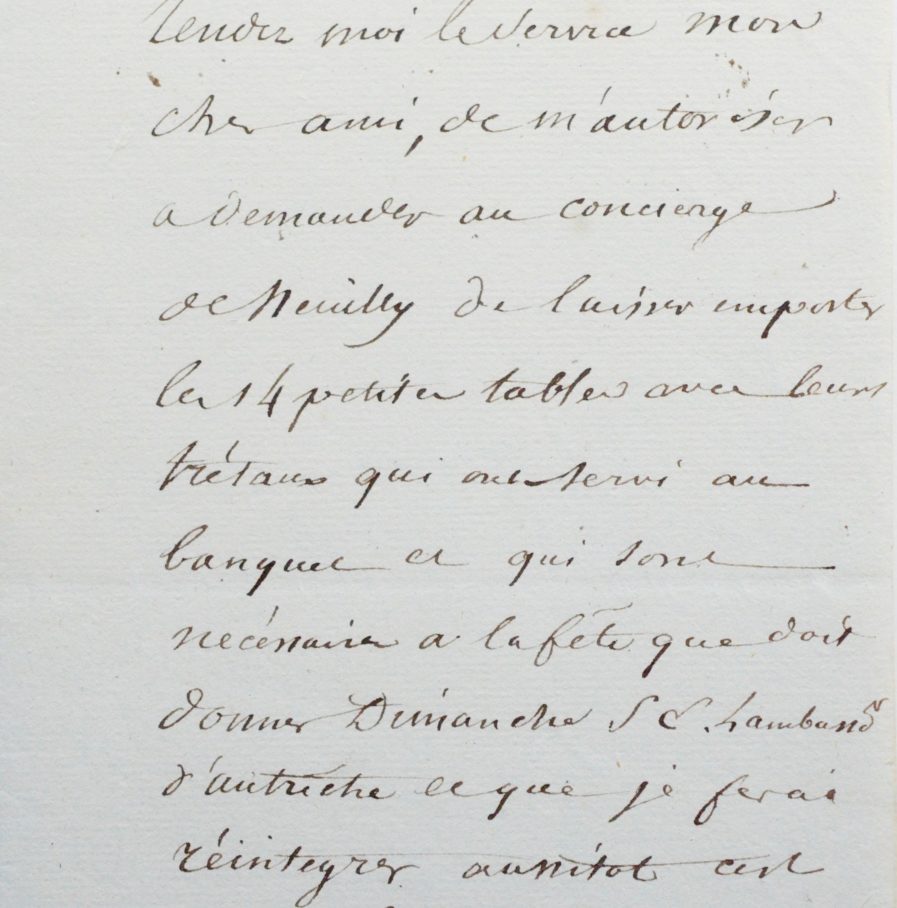 rendez moi le service mon
cher ami, de m'autoriser
a demander au concierge
de Neuilly de laisser emporter
les 14 petites tables avec leurs
tréteaux qui ont servi au
banquet et qui sont
nécessaires a la fête que doit
donner Dimanche S E. L'ambassd
d'autriche et que je ferai
réintegrer aussitot cest